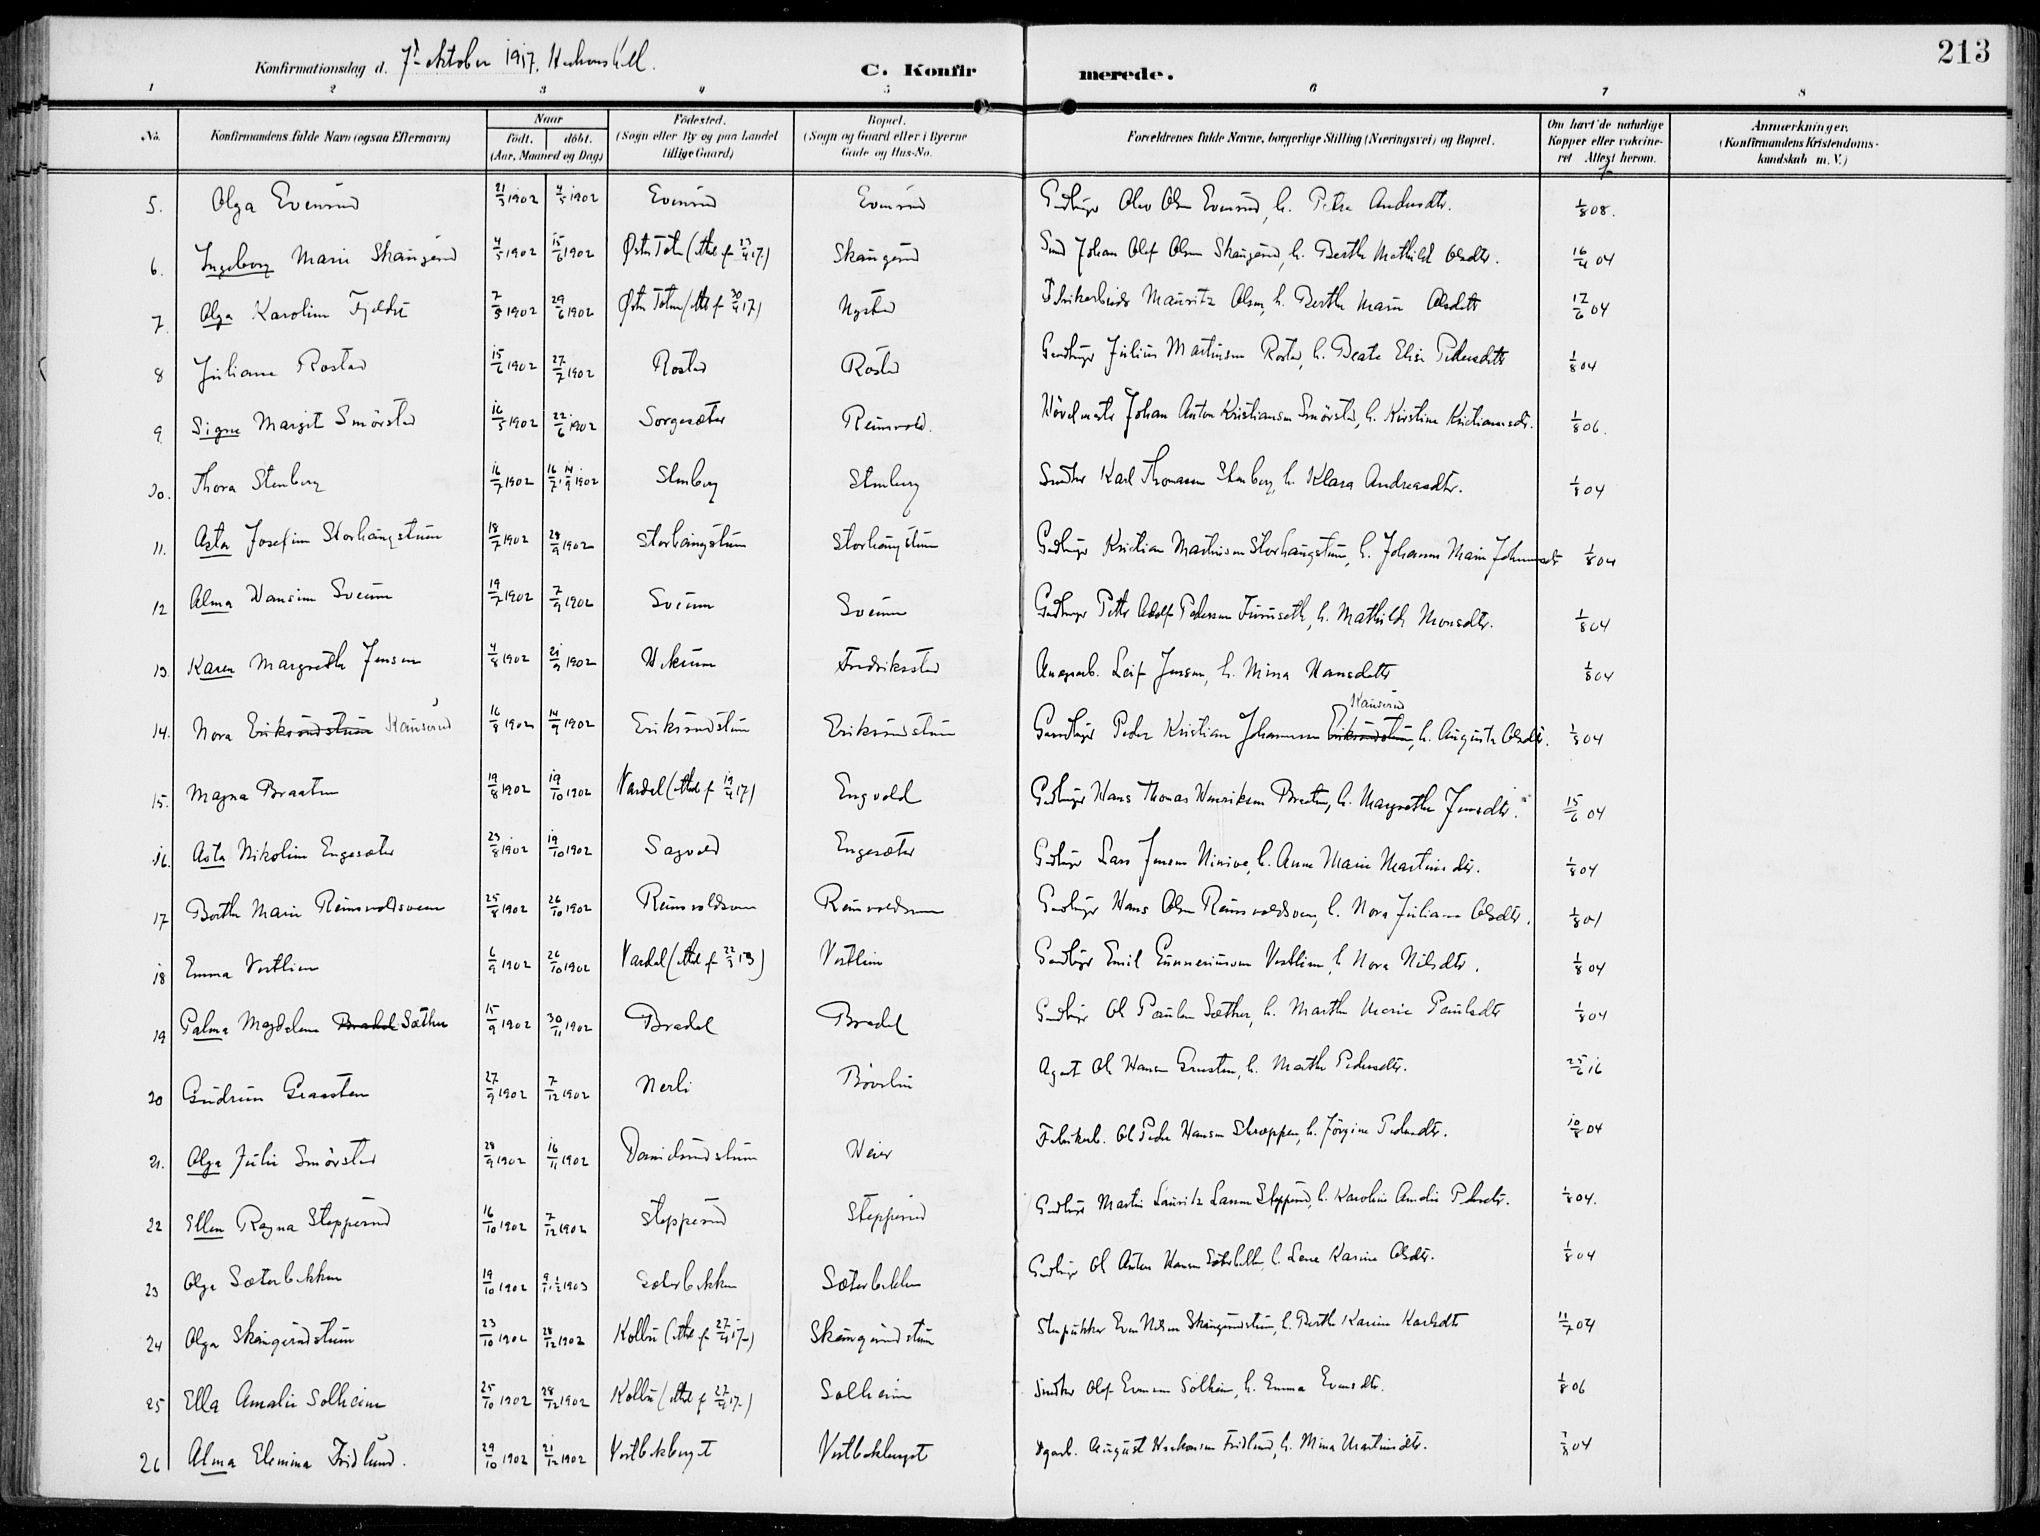 213
Konfirmationsdag d. 7de oktober 1917.
C. Konfirmerede.
1 2 3 4 5 6 7 8
No. Konfirmandens fulde Navn (ogsaa Efternavn) Naar født. døbt. (Aar, Maaned og Dag) Fødested. (Sogn eller By og paa Landet tillige Gaard) Bopæl. (Sogn og Gaard eller i Byerne Gade og Hus-No. Forældrenes fulde Navne, borgerlige Stilling (Næringsvei) og Bopæl. Om havt de naturlige Kopper eller vakcineret Attest herom. Anmærkninger. (Konfirmandens Kristendomskundskab m. V.)
5. Olga Evensrud 21/3 1902 4/5 1902 Evensrud Evensrud Olav Olsen Evensrud, h. Petra Andersdtr. 1/8 08.
6. Ingeborg Marie Skaugerud 4/5 1902 15/6 1902 Østre Toten (att. f. 23/4 17) Skaugerud Smed Johan Olaf Olsen Skaugerud, h. Berthe Mathilde Olsdtr. 16/4 04
7. Olga Karoline 7/5 1902 29/6 1902 Østre Toten (att. f. 30/4 17) Nysted Mauritz Olsen, h. Berthe Marie Olsdtr 17/6 04
8 Juliane Rostad 15/6 1902 27/7 1902 Rostad Rostad Gaardbruger Julius Martinsen Rostad, h. Beate Elise Pedersdtr 1/8 04
9 Signe Margit Smörsted 16/5 1902 22/6 1902 Sorgesæter Reinsvold. Johan Anton Kristiansen Smörsted, h. Kirstine Kristiansdtr. 1/8 06.
10. Thora Stenberg 16/7 1902 14/9 1902 Stenberg Stenberg Karl Thomassen Stenberg, h. Klara Andreasdtr. 1/8 04
11. Asta Josefine Storhaugstuen 18/7 1902 28/9 1902 Storhaugstuen Storhaugstuen Gaardbruger Kristian Martinsen Storhaugstuen, h. Johanne Marie 1/8 04
12 Alma Hansine Sveum 19/7 1902 7/9 1902 Sveum Sveum Gaardbruger Petter Adolf Pedersen Furuseth, h. Mathilde Monsdtr. 1/8 04
13. Karen Margrethe Jensen 4/8 1902 21/9 1902 Fredriksstad Leif Jensen, h. Mina Hansdatter 1/8 04
14. Nora Eriksrudstuen Kauserud 16/8 1902 14/9 1902 Eriksrudstuen Eriksrudstuen Gaardbruger Peder Kristian Johannesen Eriksrudstuen Kauserud, h. Augusta Olsdtr. 1/8 04
15. Magna Braaten 19/8 1902 19/10 1902 Vardal (att. f. 19/4 17) Engvold Gaardbruger Hans Thomas Henriksen Braaten, h. Margrethe Jensdtr. 15/6 04
16. Asta Nikoline Engesæter 23/8 1902 19/10 1902 Sagvold Engesæter Gaardbruger Lars Jensen Ninive, h. Anne Marie Martinsdtr. 1/8 04
17 Berthe Marie Reinsvoldsveen 25/8 1902 26/10 1902 Reinsvoldsveen Reinsvoldsveen Gaardbruger Hans Olsen Reinsvoldsveen, h. Nora Juliane Olsdtr. 1/8 04
18 Emma Vestlien 6/9 1902 26/10 1902 Vardal (att. f. 22/3 13) Vestlien Gaardbruger Emil Gunneriussen Vestlien, h. Nora Nilsdtr. 1/8 04
19 Palma Magdalena Bradal Sæther 15/9 1902 30/11 1902 Bradal Bradal Gaardbruger Ole Paulsen Sæther, h. Marthe Marie Paulsdtr 1/8 04
20 Gudrun Graasten 27/9 1902 7/12 1902 Nerli Bøverlien Agent Ole Hansen Graasten, h. Marthe Pedersdtr. 25/6 16
21. Olga Julie Smörsted 28/9 1902 16/11 1902 Davidsrudstuen Heier Fabrikarb. Ole Peder Hansen Skræppen, h. Jörgine Pedersdtr. 10/8 04
22 Ellen Ragna Stepperud 16/10 1902 7/12 1902 Stepperud Stepperud Gaardbruger Martin Lauritz Larsen Stepperud, h. Karoline Amalie Pedersdtr. 1/8 04.
23 Olga Sæterbakken 19/10 1902 1903 Sæterbakken Sæterbakken Gaardbruger Ole Anton Hansen Sæterbakken, h. Lene Karine Olsdtr. 1/8 04
24 Olga Skaugerudstuen 23/10 1902 28/12 1902 Kolbu (att. f. 27/4 17) Skaugerudstuen Even Nilsen Skaugerudstuen, h. Berthe Karine Karlsdtr 11/7 04
25 Ella Amalie Solheim 25/10 1902 28/12 1902 Kolbu (att. f. 27/4 17) Solheim Olaf Evensen Solheim, h. Emma Evensdtr. 1/8 06
26 Alma Elemina Fridlund. 29/10 1902 21/12 1902 Vestbakberget Vestbakberget Dagarb. August Haakonsen Fridlund, h. Mina Martinsdtr. 04